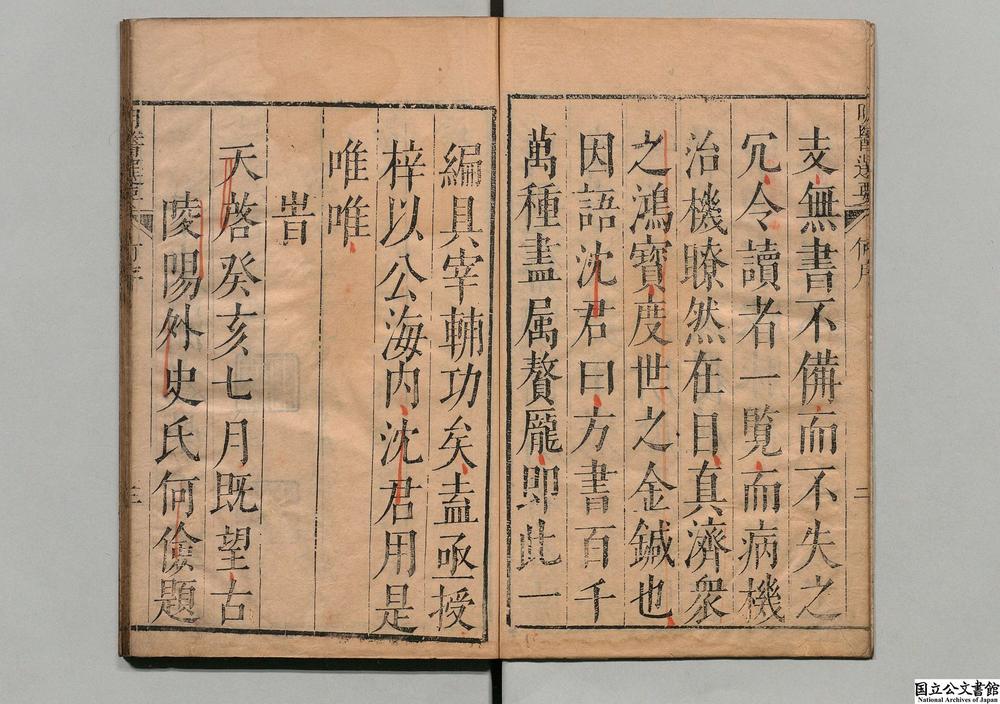 支無書不備而不失之
冗令讀者一覽而病機
治機瞭然在目真濟衆
之鴻寶度世之金鍼也
因語沈君曰方書百千
萬種盡属贅龎即此一
編具宰輔功矣盍亟授
梓以公海内沈君用是
唯唯
旹
天啓癸亥七月既望古
陵陽外史氏何儉題
明醫選要
何序
二
明醫選要
何序
三
国立公文書館
National Archives of Japan